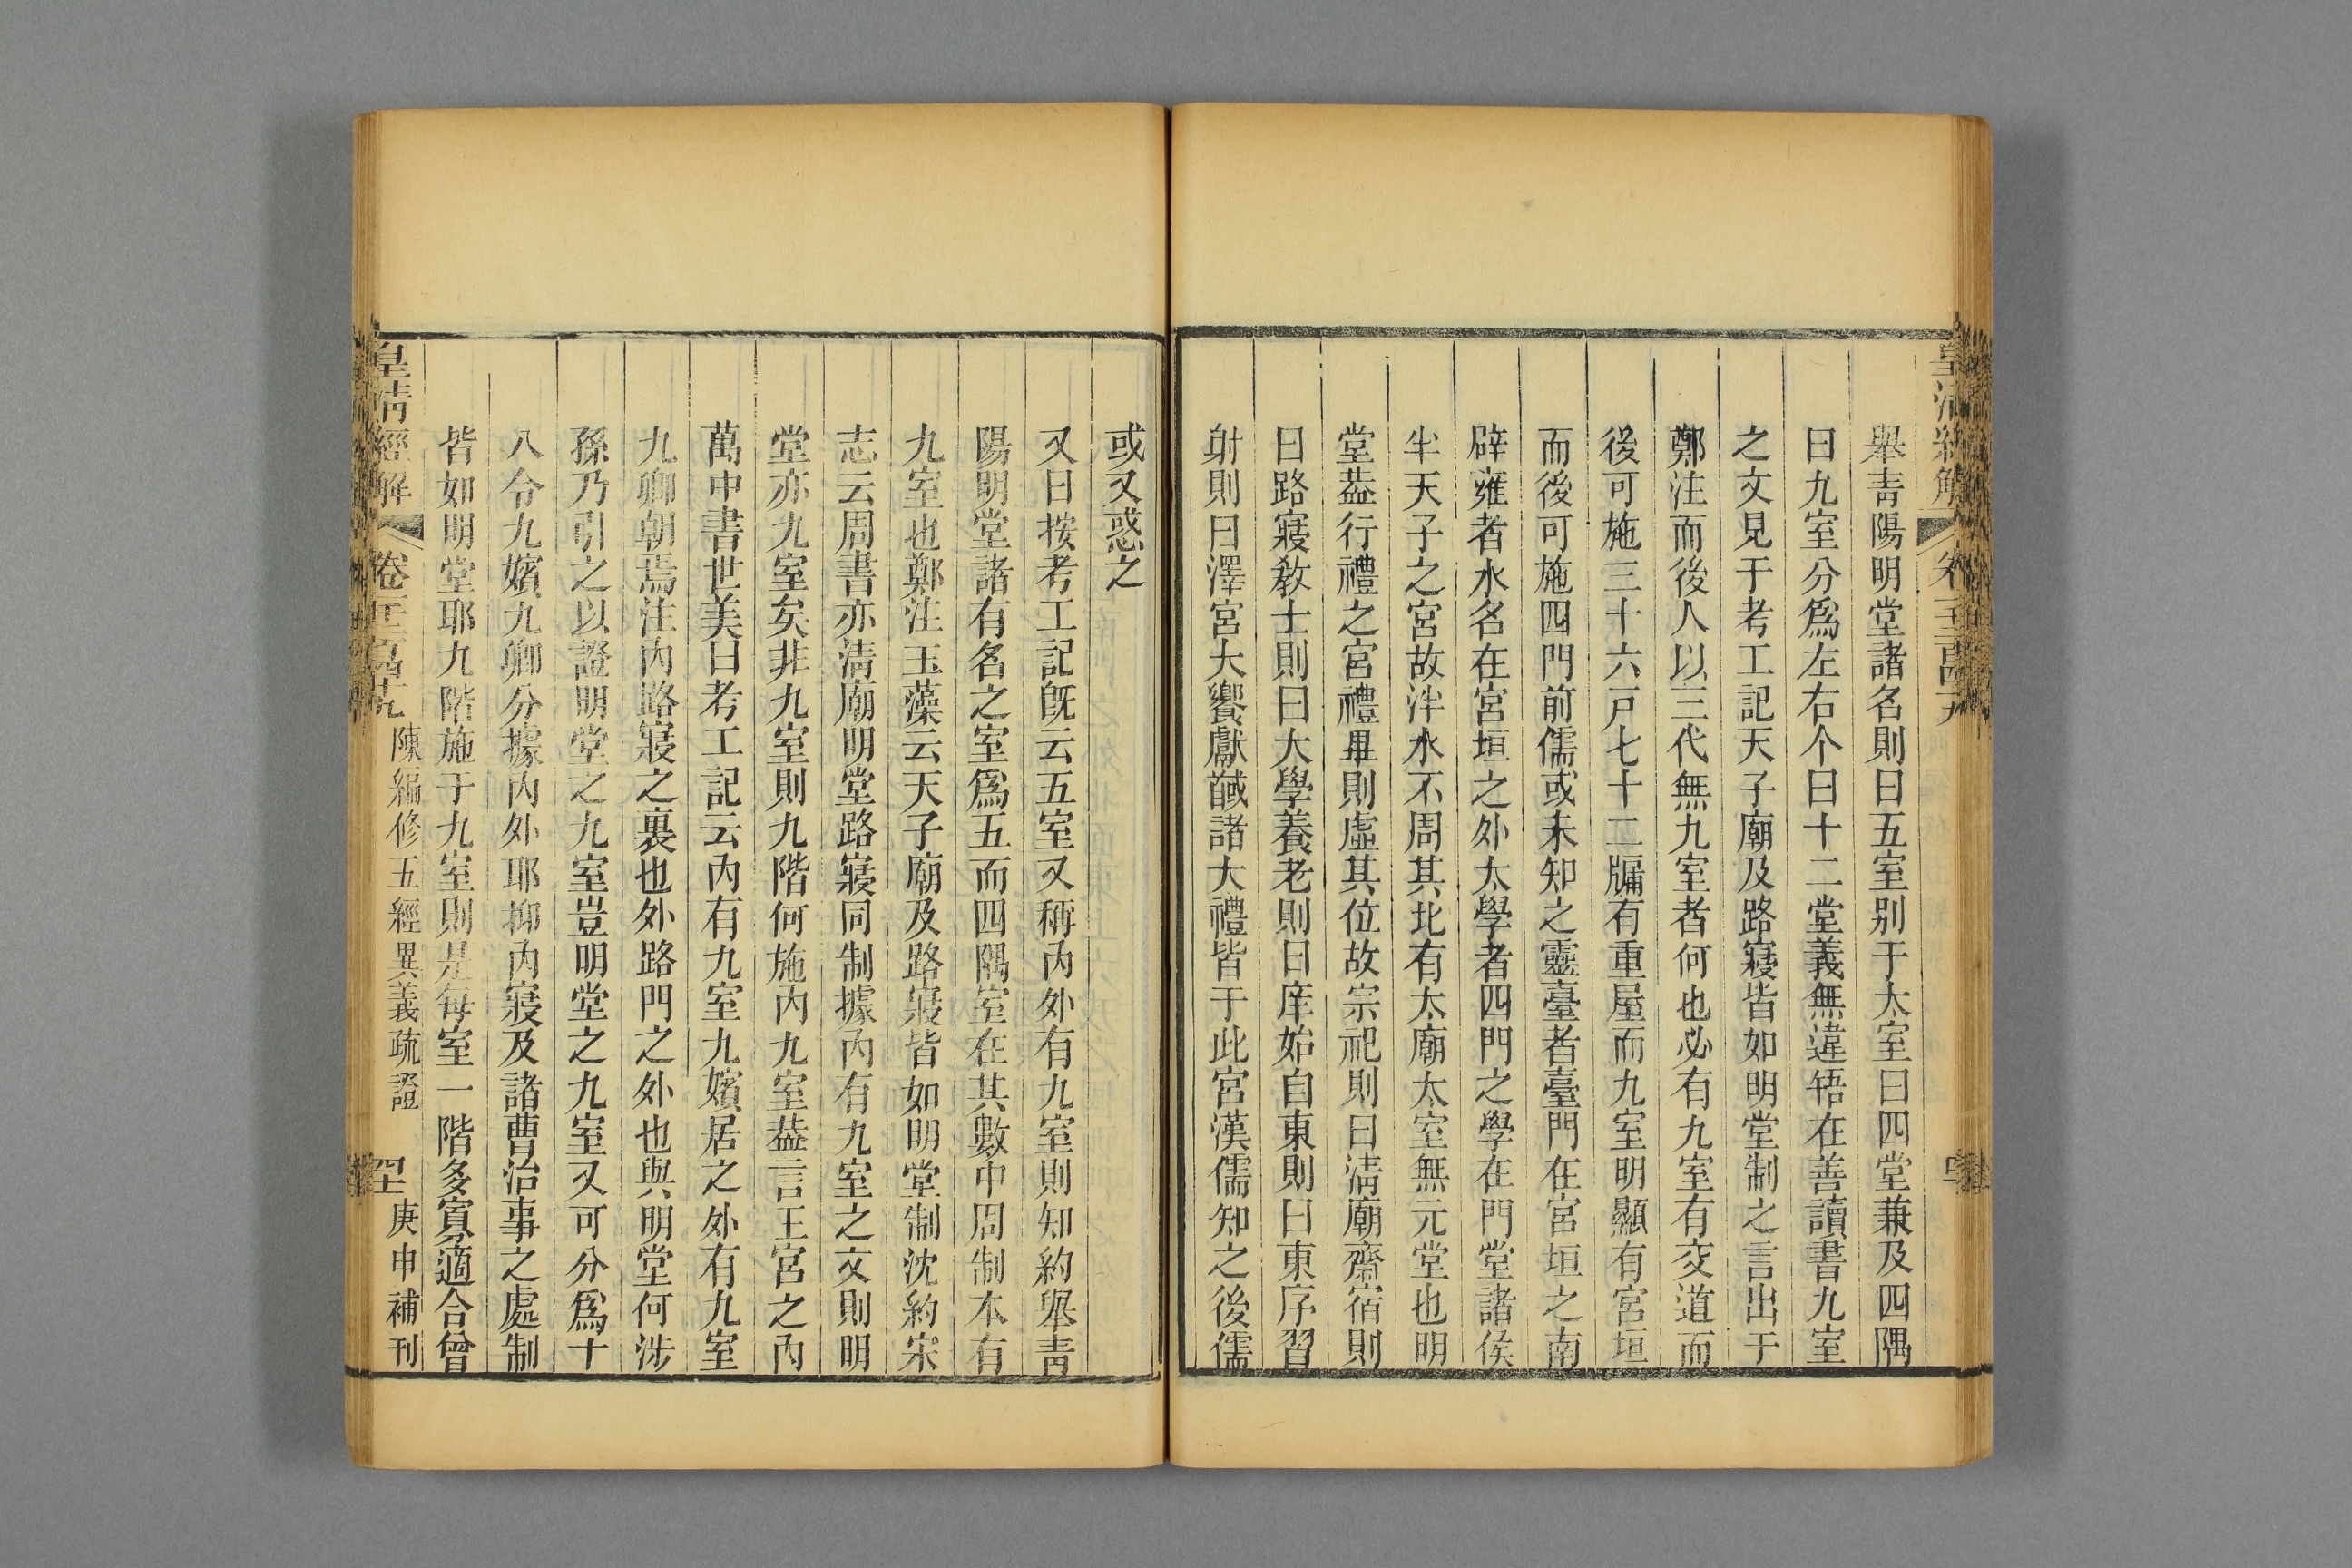 舉靑陽明堂諸名則曰五室别于太室曰四堂兼及四隅
曰九室分爲左右个曰十二堂義無違啎在善讀書九室
之文見于考工記天子廟及路寢皆如明堂制之言出于
鄭注而後人以三代無九室者何也必有九室有交道而
後可施三十六戸七十二牖有重屋而九室明顯有宮垣
而後可施四門前儒或未知之靈臺者臺門在宮垣之南
辟雍者水名在宮垣之外太學者四門之學在門堂諸侯
半天子之宮故泮水不周其北有太廟太室無元堂也明
堂葢行禮之宮禮畢則虛其位故宗祀則曰淸廟齋宿則
曰路寢敎士則曰大學養老則曰庠始自東則曰東序習
射則曰澤宮大饗獻馘諸大禮皆于此宮漢儒知之後儒
或又惑之
又曰按考工記旣云五室又稱內外有九室則知約舉靑
陽明堂諸有名之室爲五而四隅室在其數中周制本有
九室也鄭注玉藻云天子廟及路寢皆如明堂制沈約宋
志云周書亦淸廟明堂路寢同制據內有九室之文則明
堂亦九室矣非九室則九階何施內九室葢言王宮之內
萬中書世美曰考工記云內有九室九嬪居之外有九室
九卿朝焉注內路寢之裏也外路門之外也與明堂何涉
孫乃引之以證明堂之九室豈明堂之九室又可分爲十
八令九嬪九卿分據內外耶抑內寢及諸曹治事之處制
皆如明堂耶九階施于九室則是每室一階多寡適合曾
皇淸經解 卷千二百四十九 陳編修五經異義疏證 四十 庚申補刊